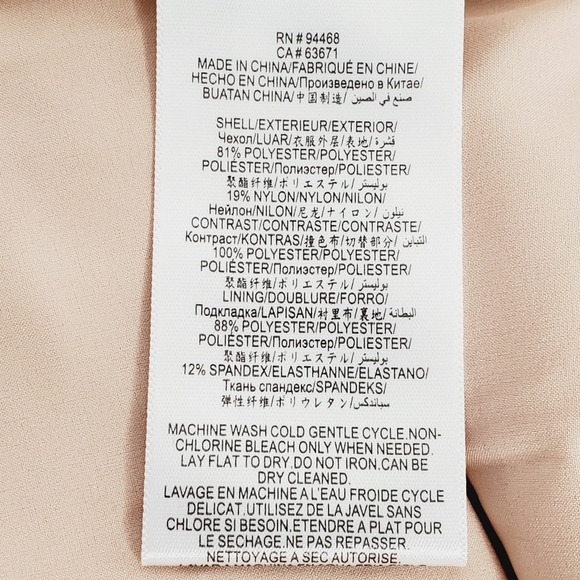 RN # 94468
CA # 63671
MADE IN CHINA/FABRIQUÉ EN CHINE/
HECHO EN CHINA/Произведено в Китае/
BUATAN CHINA/中国制造/ صنع في الصين/
SHELL/EXTERIEUR/EXTERIOR/
Чехол/LUAR/衣服外层/表地/ قشرة/
81% POLYESTER/POLYESTER/
POLIÉSTER/Полиэстер/POLIESTER/
聚酯纤维/ポリエステル/ بوليستر/
19% NYLON/NYLON/NILON/
Нейлон/NILON/尼龙/ナイロン/ نيلون/
CONTRAST/CONTRASTE/CONTRASTE/
Контраст/KONTRAS/撞色布/切替部分/ التباين/
100% POLYESTER/POLYESTER/
POLIÉSTER/Полиэстер/POLIESTER/
聚酯纤维/ポリエステル/ بوليستر/
LINING/DOUBLURE/FORRO/
Подкладка/LAPISAN/衬里布/裏地/ البطانة/
88% POLYESTER/POLYESTER/
POLIÉSTER/Полиэстер/POLIESTER/
聚酯纤维/ポリエステル/ بوليستر/
12% SPANDEX/ELASTHANNE/ELASTANO/
Ткань спандекс/SPANDEKS/
弹性纤维/ポリウレタン/ سباندكس/
MACHINE WASH COLD GENTLE CYCLE.NON-
CHLORINE BLEACH ONLY WHEN NEEDED.
LAY FLAT TO DRY.DO NOT IRON.CAN BE
DRY CLEANED.
LAVAGE EN MACHINE A L'EAU FROIDE CYCLE
DELICAT.UTILISEZ DE LA JAVEL SANS
CHLORE SI BESOIN.ETENDRE A PLAT POUR
LE SECHAGE.NE PAS REPASSER.
NETTOYAGE A SEC AUTORISE.